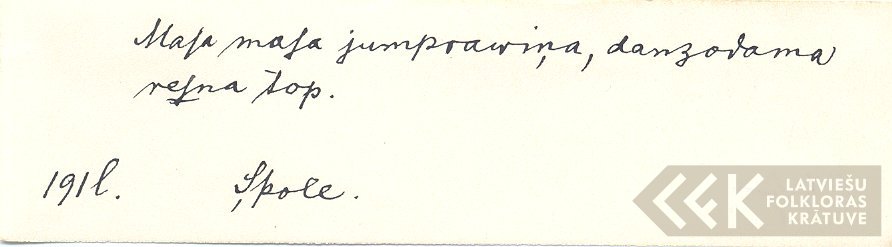 Maſa maſa jumprawiņa, danzodama
reſna top.
191 l. Špole.
LATVIEŠU
FOLKLORAS
KRĀTUVE